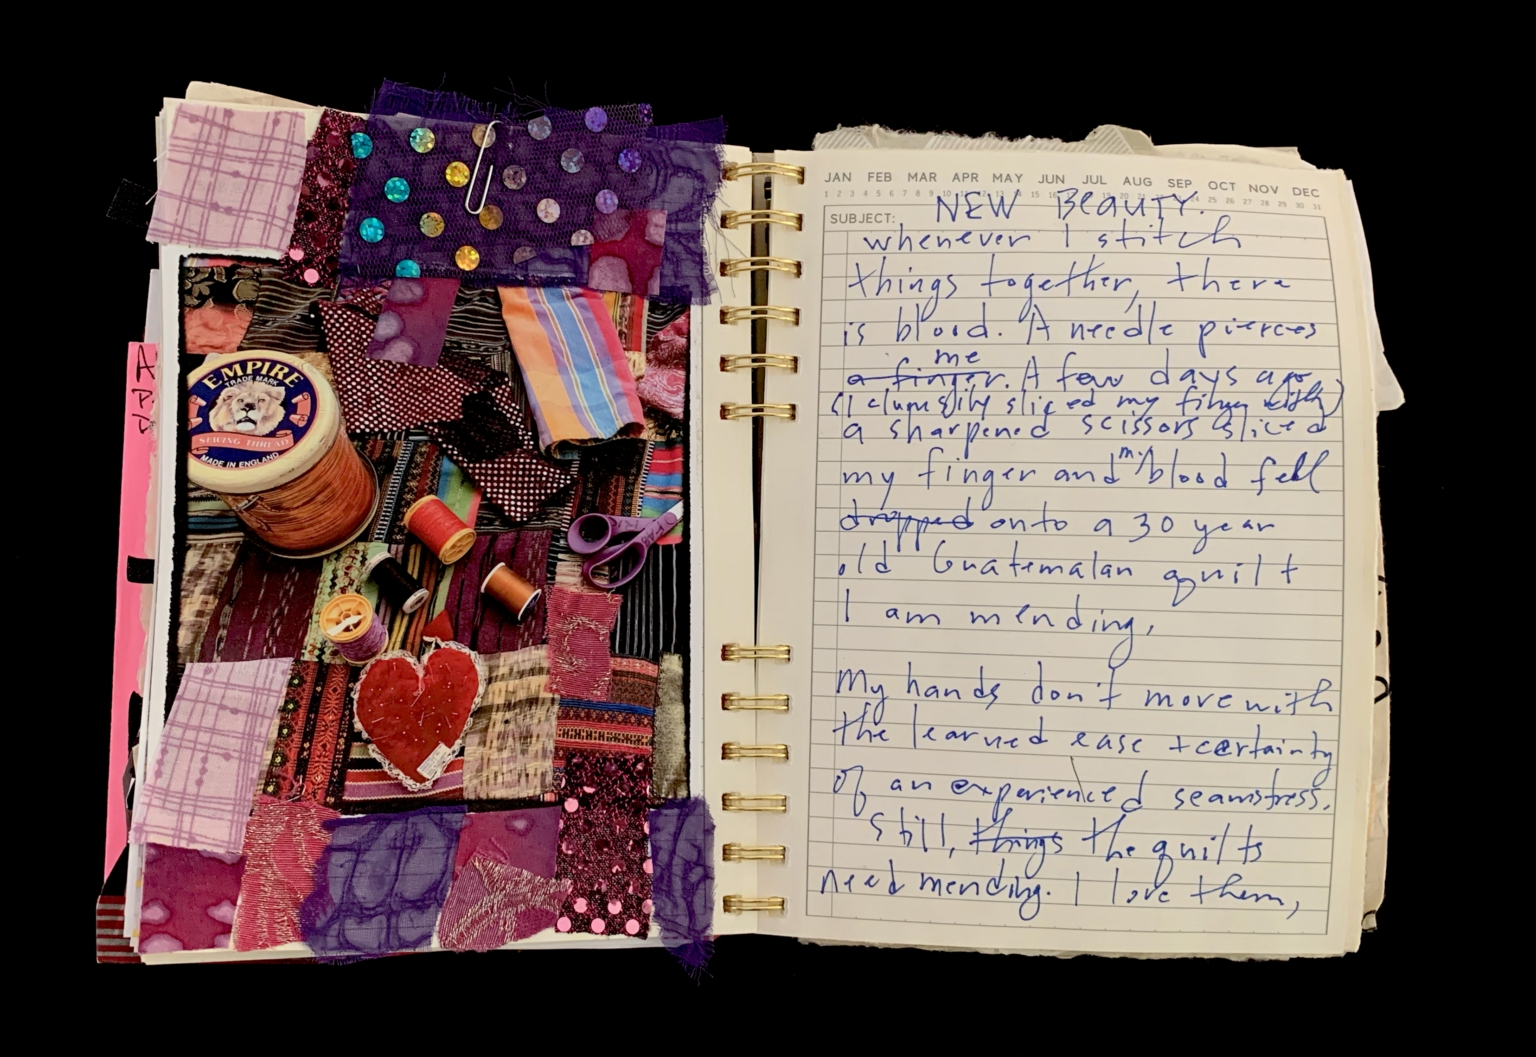 EMPIRE
TRADE MARK
SEWING THREAD
MADE IN ENGLAND
A
P
JAN FEB MAR APR MAY JUN JUL AUG SEP OCT NOV DEC
1 2 3 4 5 6 7 8 9 10 11 12 13 14 15 16 17 18 19 20 21 22 23 24 25 26 27 28 29 30 31
NEW BEAUTY.
SUBJECT:
whenever I stitch
things together, there
is blood. A needle pierces
me
a finger. A few days ago
(I clumsily sliced my finger with)
a sharpened scissors sliced
my finger and my blood fell
dropped onto a 30 year
old Guatemalan quilt
I am mending.
My hands don't move with
the learned ease + certainty
of an experienced seamstress.
Still, things the quilts
need mending. I love them,